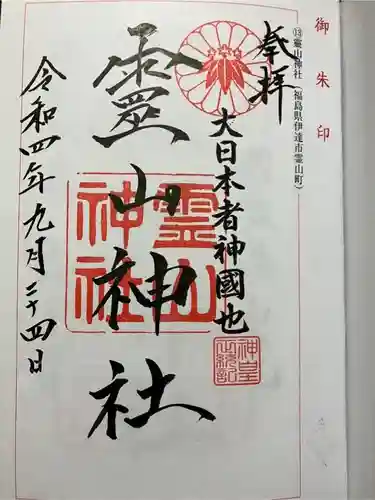 御朱印
⑬霊山神社(福島県伊達市霊山町)
奉拝
大日本者神國也
靈山神社
令和四年九月二十四日
霊山神社
神皇正統記